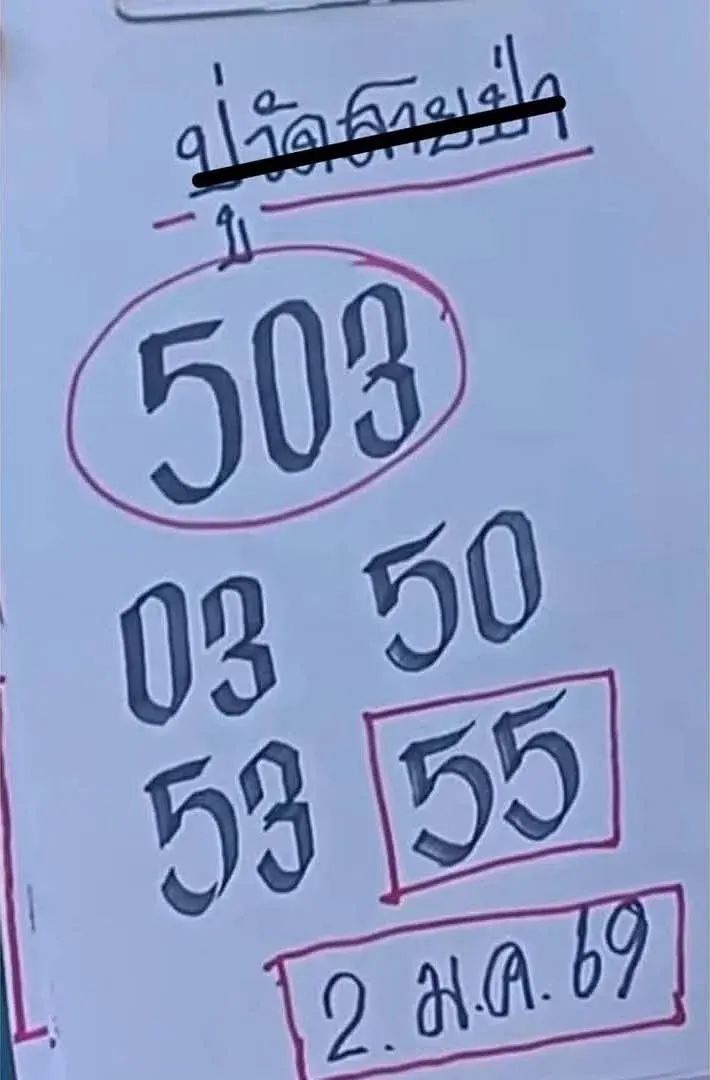 ปู่วัดสายป่า
บ
503
03 50
53 55
2. ม.ค. 69